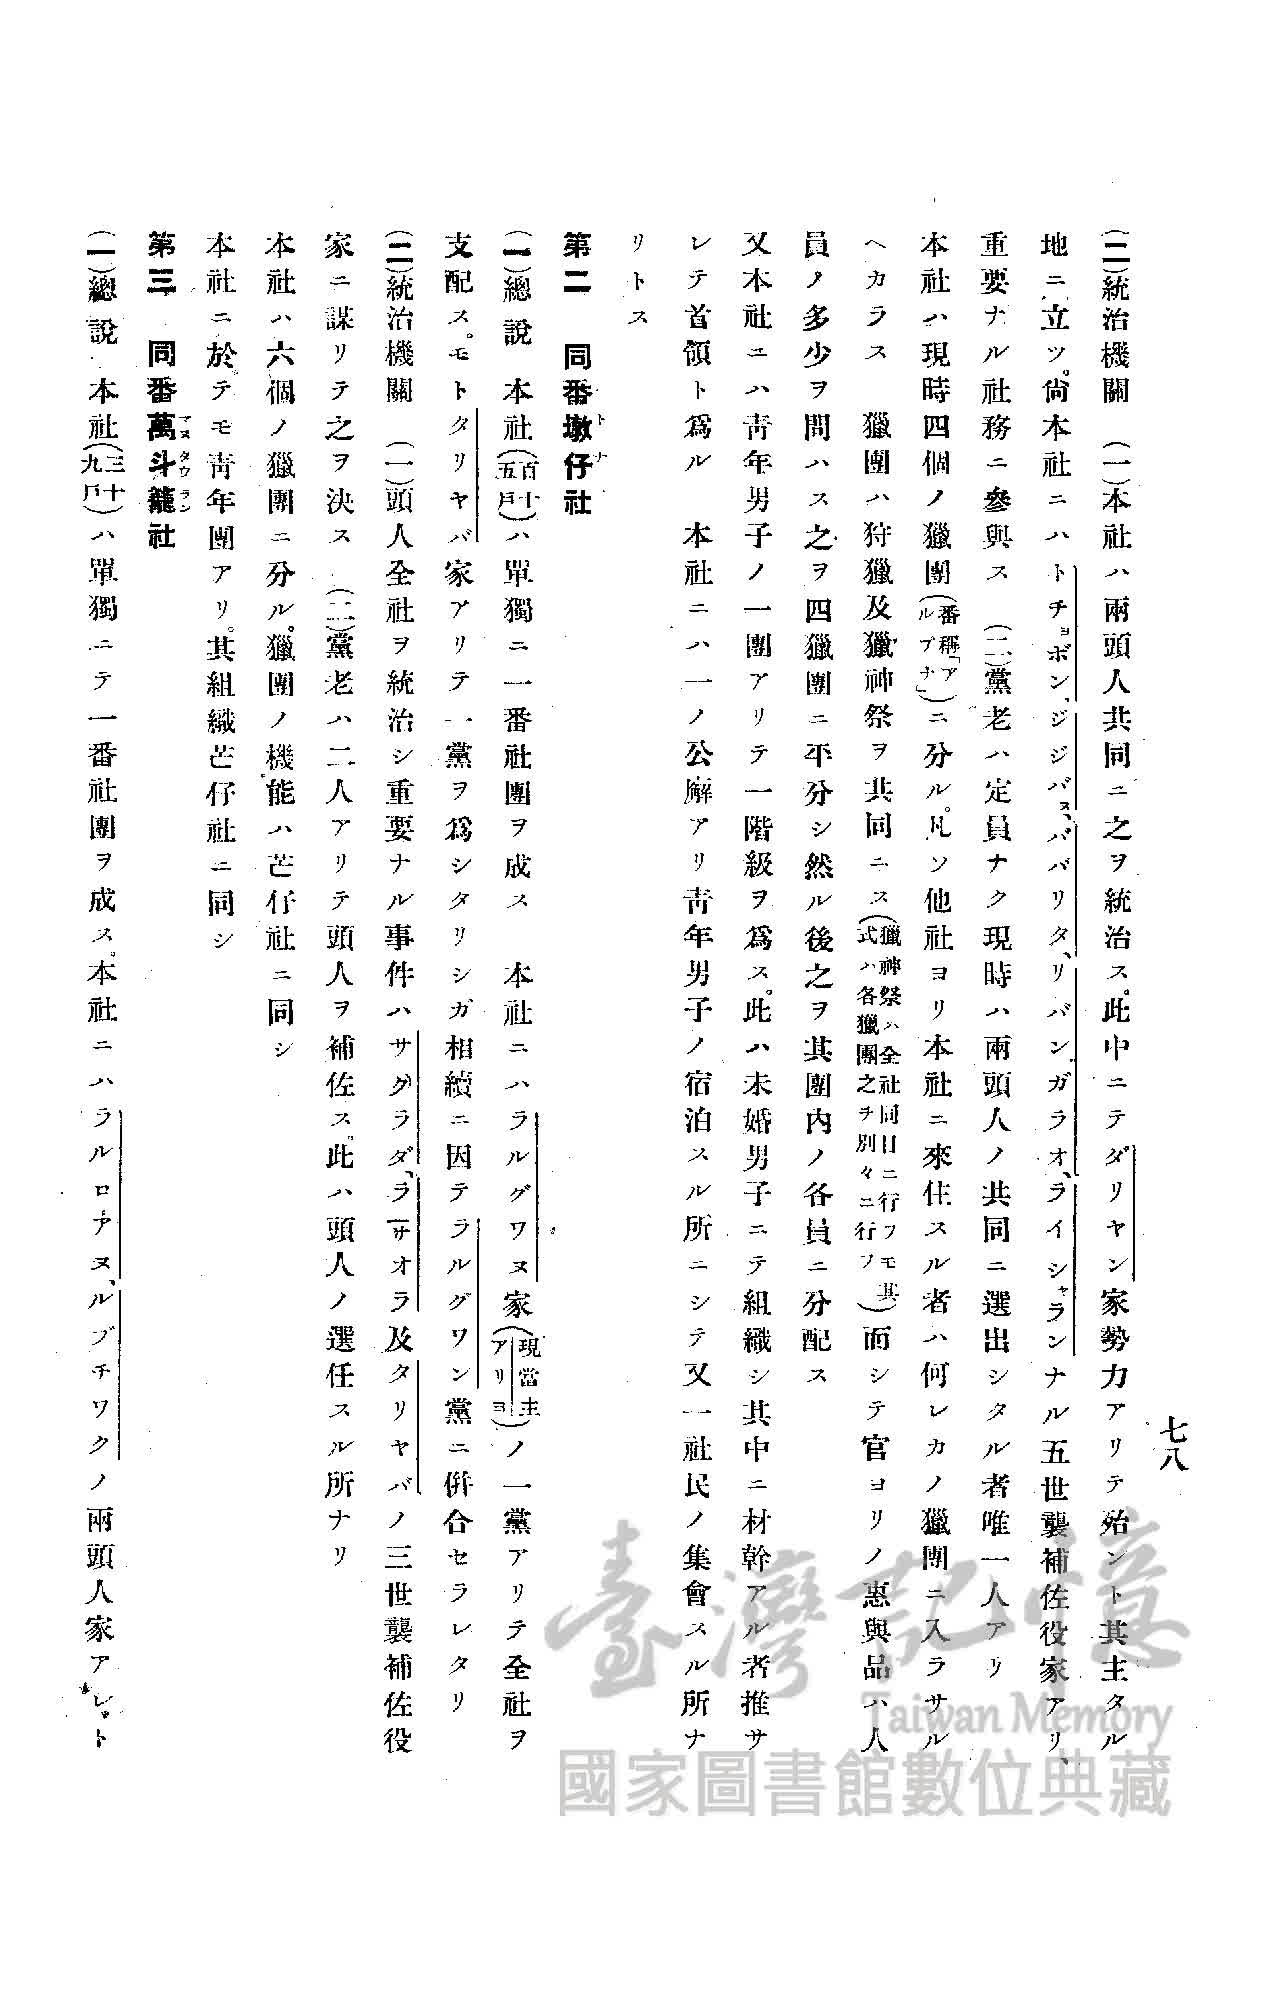 七八
(二)統治機關　(一)本社ハ兩頭人共同ニ之ヲ統治ス。此中ニテダリヤン家勢力アリテ殆ント其主タル
地ニ立ツ。尙本社ニハトチョボン、ジジバス、ババリタ、リバン、ガラオ、ライシャランナル五世襲補佐役家アリ、
重要ナル社務ニ參與ス　(二)黨老ハ定員ナク現時ハ兩頭人ノ共同ニ選出シタル者唯一人アリ
本社ハ現時四個ノ獵團(番稱「アルブナ」)ニ分ル。凡ソ他社ヨリ本社ニ來住スル者ハ何レカノ獵團ニ入ラサル
ヘカラス　獵團ハ狩獵及獵神祭ヲ共同ニス(獵神祭ハ全社同日ニ行フモ其式ハ各獵團之ヲ別々ニ行フ)而シテ官ヨリノ惠與品ハ人
員ノ多少ヲ問ハス之ヲ四獵團ニ平分シ然ル後之ヲ其團內ノ各員ニ分配ス
又本社ニハ靑年男子ノ一團アリテ一階級ヲ爲ス。此ハ未婚男子ニテ組織シ其中ニ材幹アル者推サ
レテ首領ト爲ル　本社ニハ一ノ公廨アリ靑年男子ノ宿泊スル所ニシテ又一社民ノ集會スル所ナ
リトス
第二　同番墩仔社
トナ
(一)總說　本社(百十五戶)ハ單獨ニ一番社團ヲ成ス　本社ニハラルグワヌ家(現當主アリヨ)ノ一黨アリテ全社ヲ
支配ス。モトタリヤバ家アリテ一黨ヲ爲シタリシガ相續ニ因テラルグワン黨ニ倂合セラレタリ
(二)統治機關　(一)頭人全社ヲ統治シ重要ナル事件ハサグラダ、ラサオラ及タリヤバノ三世襲補佐役
家ニ謀リテ之ヲ決ス　(二)黨老ハ二人アリテ頭人ヲ補佐ス。此ハ頭人ノ選任スル所ナリ
本社ハ六個ノ獵團ニ分ル。獵團ノ機能ハ芒仔社ニ同シ
本社ニ於テモ靑年團アリ。其組織芒仔社ニ同シ
第三　同番萬斗籠社
マヌタウラン
(一)總說　本社(三十九戶)ハ單獨ニテ一番社團ヲ成ス。本社ニハラルロアヌ、ルブチワクノ兩頭人家アレト
臺灣記憶
Taiwan Memory
國家圖書館數位典藏